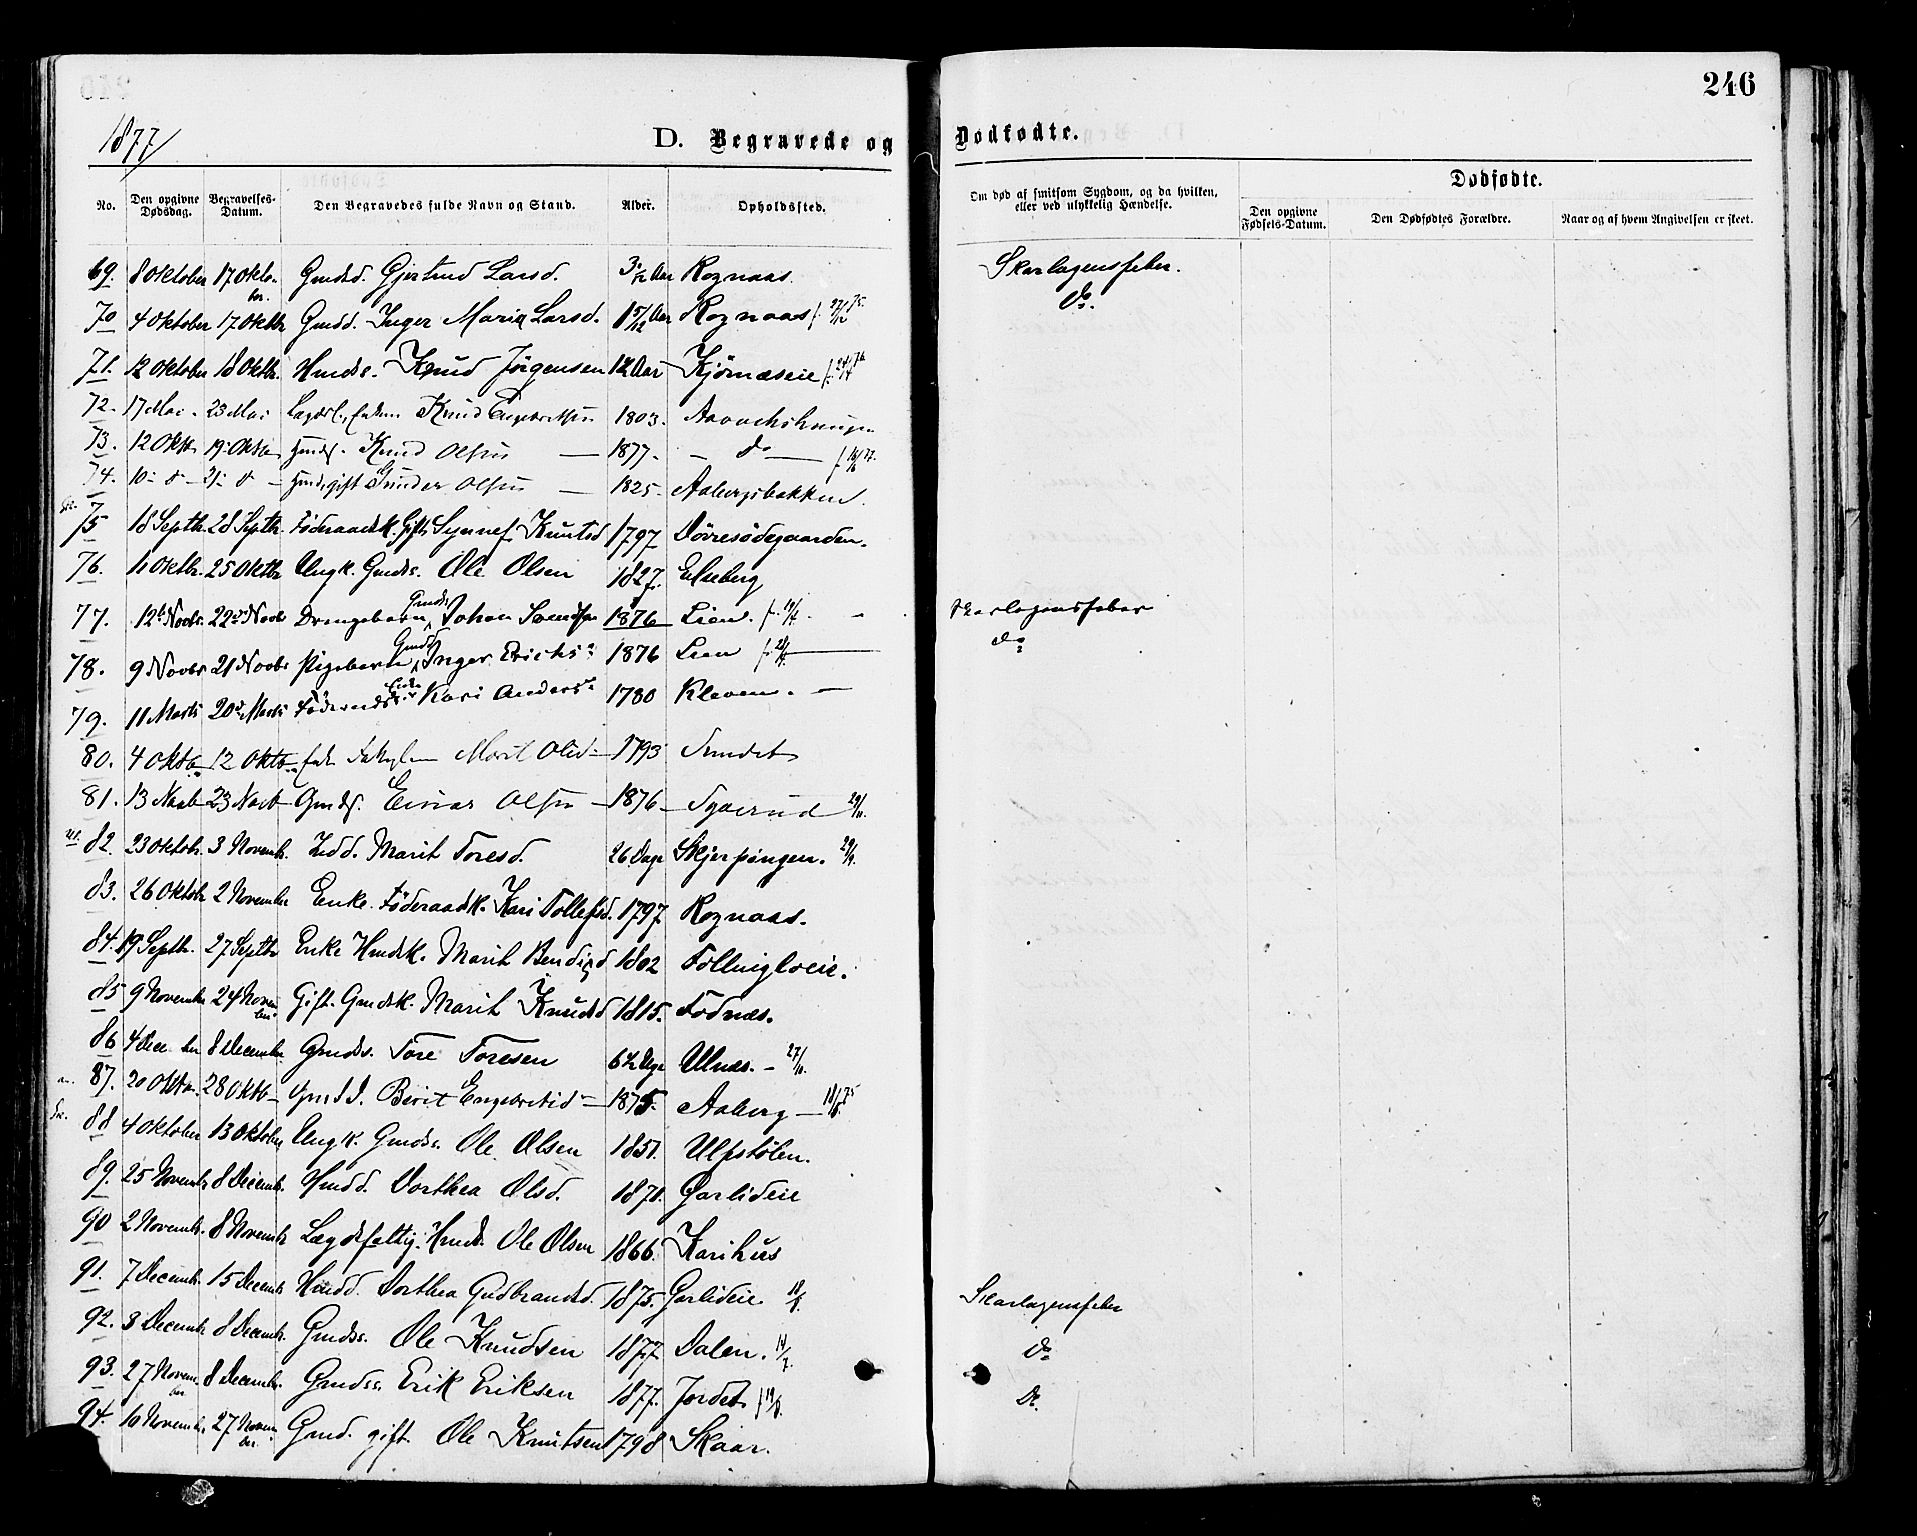 246
1877
D. Begravede og Dødfødte.
No. Den opgivne Dødsdag. Begravelses-Datum. Den Begravedes fulde Navn og Stand. Alder. Opholdssted. Om død af smitsom Sygdom, og da hvilken, eller ved ulykkelig Hændelse. Dødfødte.
Den opgivne Fødsels-Datum. Den Dødfødtes Forældre. Naar og af hvem Angivelsen er skeet.
69. 8 Oktober 17 Oktober. Gmdsd. Gjertrud Larsd. Aar Rognaas. Skarlagensfeber.
70 4 Oktober 17 Oktbr Gmdd. Inger Maria Larsd. 1 5/12 Aar Rognaas f. 27/12 75. Do.
71. 12 Oktober 18 Oktb. Hmds. Knud Jörgensen 1 1/2 Aar Kjörnæseie f. 24/4 76
72. 17 Mai 23 Mai Knud Engebretsen 1803.
73. 12 Oktb 19 Oktb Hmds. Knud Olsen — 1877. — do —
74. 10 d 21 d Hmds gift Gunder Olsen — 1825. Aabergsbakken.
75 18 Septb. 28 Septb. Föderaadsk. Gift Synnef Knutsd 1797 Dövresödegaarden.
76. 11 Oktbr. 25 Oktbr Ungk. Gmds. Ole Olsen 1827. Elsberg
77. 12 Novb. 22 Novb Drengebarn Gmds Johan Svendsen 1876 Lien. Skarlagensfeber
78. 9 Novbr 21 Novbr Pigebarn Gmdd Inger Erichs 1876 Lien do
79. 11 Marts 20 Marts Kari Anders 1780 Kleven. —
80. 4 Oktb 12 Oktb Marit Olsd 1793 Sundet
81. 13 Novb 23 Novb Gmds. Einar Olsen 1876 29/11.
82. 23 Oktob. 3 Novemb. Marit Toresd. 26 Dage Skjerpingen. 29/9.
83. 26 Oktobr 2 November Enke. Föderaadk. Kari Tollefsd. 1797 Rognaas.
84. 19 Septb. 27 Septb Enke Hmdsk. Marit Bendigd 1802 Follingloeie.
85 9 November 24 November. Gift. Gmdsk. Marit Knudsd 1815. Fodnæs.
86 4 December 8 December Gmds. Tore Toresen Dage Ulnæs. — 27/11.
87. 20 Oktb. 28 Oktb Gmdd. Berit Engebretsd 1875. Aaberg —
88 4 Oktober 13 Oktober Ungk. Gmds. Ole Olsen 1851. Ulpstölen.
89. 25 Novembr 8 Decemb. Hmdd. Dorthea Olsd. 1871. Garlideie
90 2 Novembr. 8 Novembr Lægdsfattig. Hmds. Ole Olsen 1866. Karihus
91. 7 Decemb. 15 Decemb Hmdd. Dorthea Gudbrandsd. 1875. Garlideie 18/8. Skarlagensfeber
92. 3 Decembr 8 Decemb. Gmds. Ole Knudsen 1877 Dalen. Do
93. 27 November 8 Decembr. Gmdss. Erik Eriksen 1877. Jordet Do.
94. 16 Novembr. 27 November. Gmd. gift Ole Knutsen 1798 Skaar.